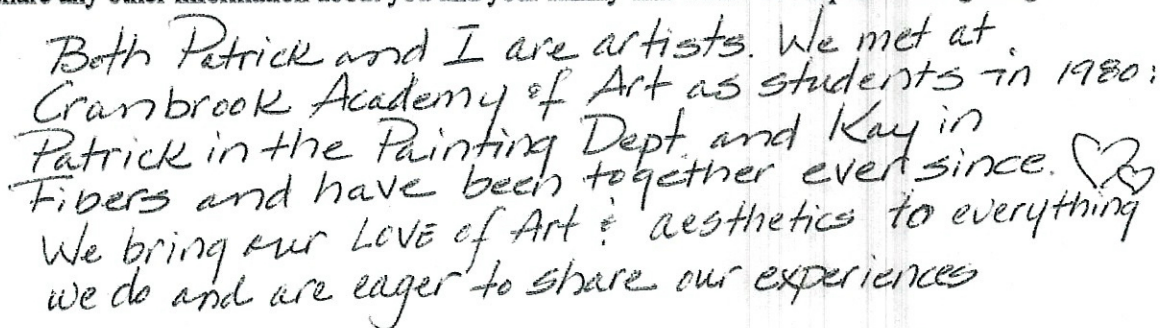 Both Patrick and I are artists. We met at
Cranbrook Academy of Art as students in 1980:
Patrick in the Painting Dept and Kay in
Fibers and have been together ever since.
We bring our Love of Art & aesthetics to everything
we do and are eager to share our experiences